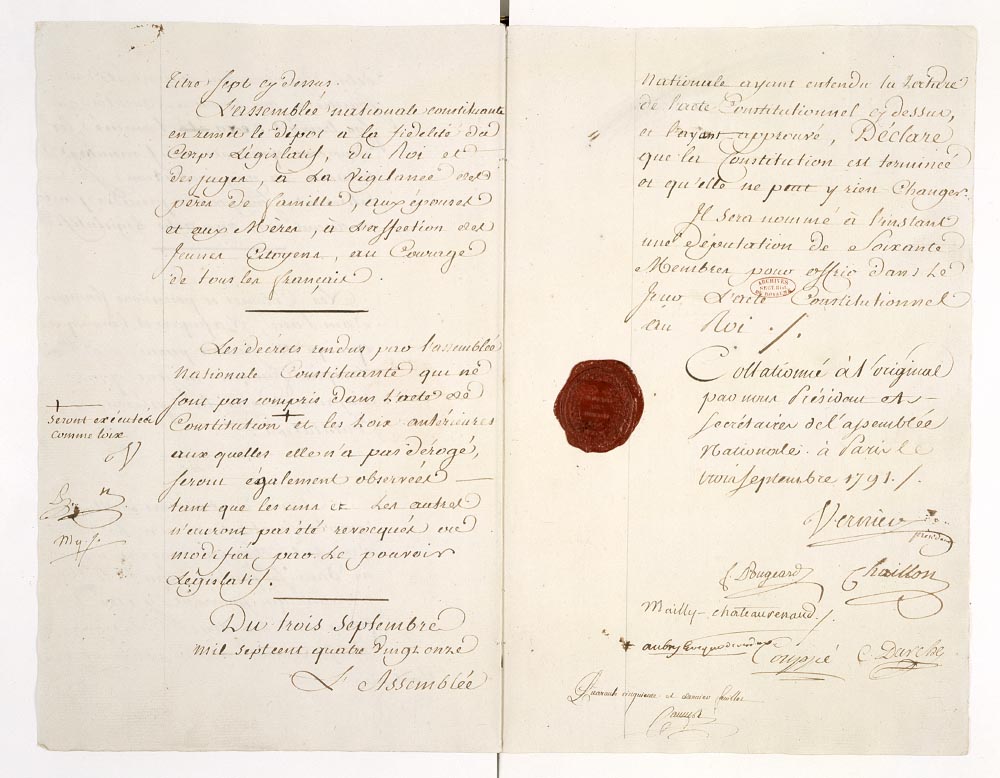 titre sept cy dessus.
L'assemblée nationale constituante
en remet le dépot à la fidelité du
Corps Législatif, du Roi et
des juges, à la vigilance des
peres de famille, aux épouses
et aux Mères, à l'affection des
jeunes Citoyens, au Courage
de tous les français.
Les décrets rendus par l'assemblée
Nationale Constituante qui ne
sont pas compris dans l'acte de
Constitution + et les Loix antérieures
aux quelles elle n'a pas dérogé,
seront également observées
tant que les uns et les autres
n'auront pas été revocqués ou
modifiés par le pouvoir
Législatif.
+
seront exécutés
comme loix
Du trois septembre
mil sept cent quatre vingt onze
L'Assemblée
nationale ayant entendu la Lecture
de l'acte Constitutionnel cy dessus,
et l'ayant approuvé, Déclare
que la Constitution est terminée
et qu'elle ne peut y rien Changer.
Il sera nommé à l'instant
une députation de soixante
Membres pour offrir dans le
jour L'acte Constitutionnel
au Roi ./.
ARCHIVES
Collationné à l'original
par nous Président et
secrétaires de l'assemblée
Nationale. à Paris le
trois septembre 1791./.
Vernier
président
f. Bougeard Chaillon
Mailly-chateaurenaud./.
Couppé C. Darche
Quarante cinquieme et dernier feuillet